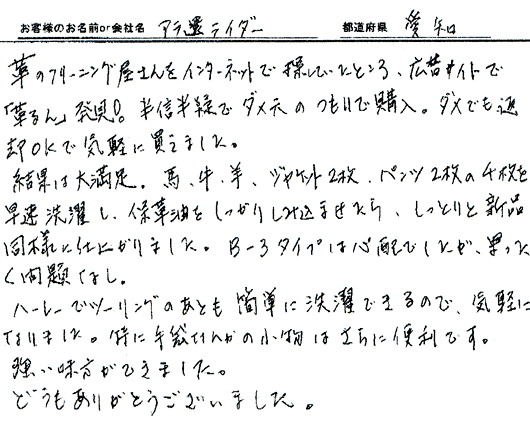 お客様のお名前or会社名 アラ還ライダー 都道府県 愛知
革のクリーニング屋さんをインターネットで探していたところ、広告サイトで
「革るん」発見!。半信半疑でダメ元のつもりで購入。ダメでも返
却OKで気軽に買えました。
結果は大満足。馬、牛、羊、ジャケット2枚、パンツ2枚の4枚を
早速洗濯し、保革油をしっかりしみ込ませたら、しっとりと新品
同様に仕上がりました。B-3タイプは心配でしたが、まった
く問題なし。
ハーレーでツーリングのあとも簡単に洗濯できるので、気軽に
なりました。特に手袋なんかの小物はさらに便利です。
強い味方ができました。
どうもありがとうございました。